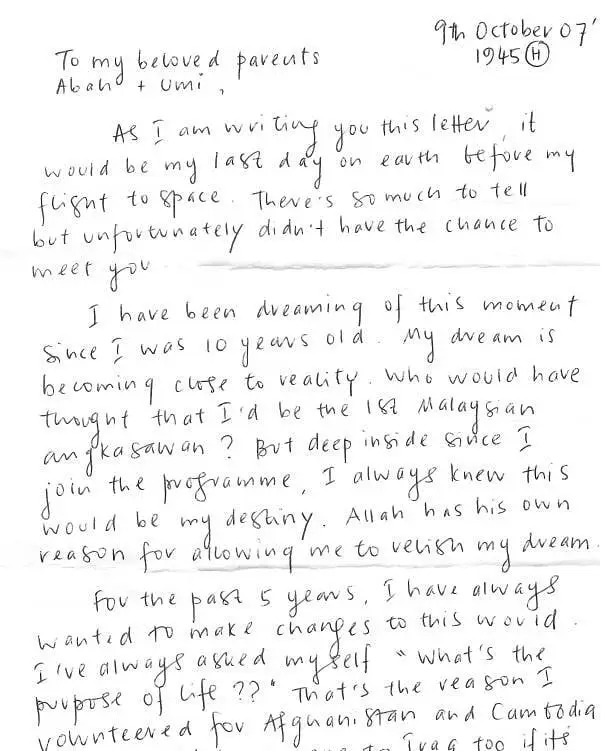 9th October 07'
1945 H
To my beloved parents
Abah + Umi,
As I am writing you this letter, it
would be my last day on earth before my
flight to space. There's so much to tell
but unfortunately didn't have the chance to
meet you
I have been dreaming of this moment
since I was 10 years old. My dream is
becoming close to reality. Who would have
thought that I'd be the 1st Malaysian
angkasawan? But deep inside since I
join the programme, I always knew this
would be my destiny. Allah has his own
reason for allowing me to relish my dream.
For the past 5 years, I have always
wanted to make changes to this world.
I've always asked myself "What's the
purpose of life??" That's the reason I
volunteered for Afghanistan and Cambodia
to Iraq too if its